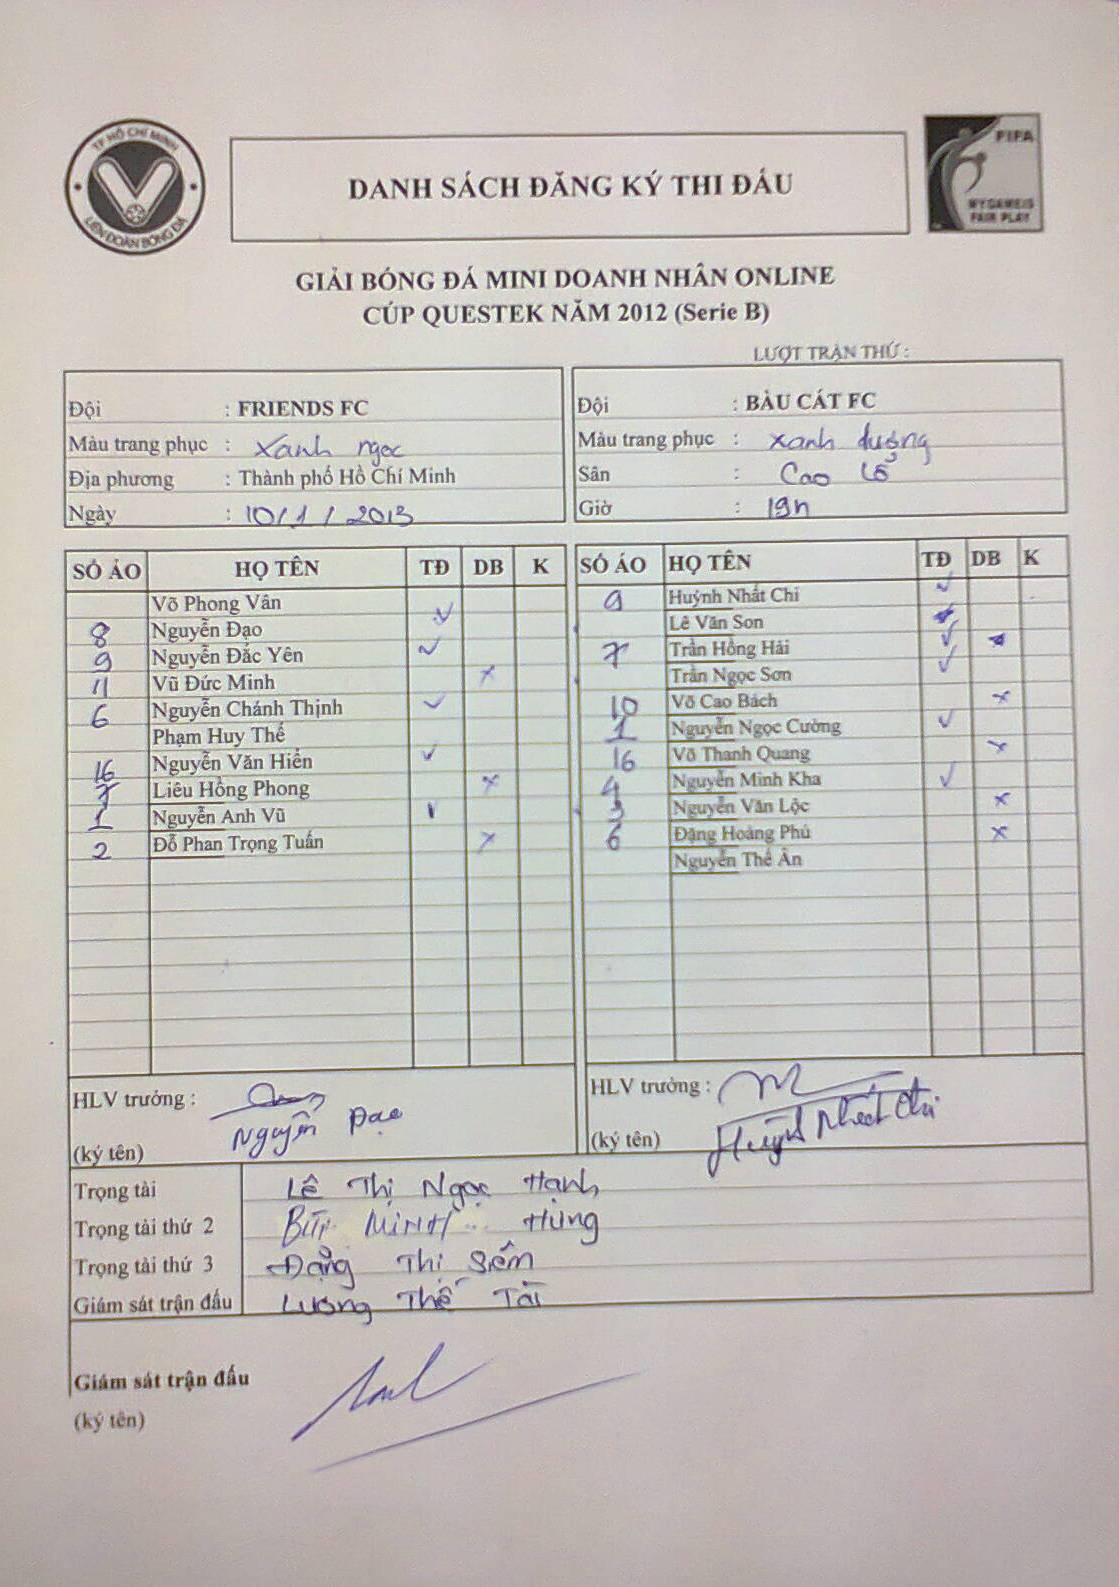 TP HỒ CHÍ MINH
LIÊN ĐOÀN BÓNG ĐÁ
DANH SÁCH ĐĂNG KÝ THI ĐẤU
FIFA
MY GAME IS
FAIR PLAY
GIẢI BÓNG ĐÁ MINI DOANH NHÂN ONLINE
CÚP QUESTEK NĂM 2012 (Serie B)
LƯỢT TRẬN THỨ :
Đội : FRIENDS FC
Màu trang phục : Xanh ngọc
Địa phương : Thành phố Hồ Chí Minh
Ngày : 10/1/2013
Đội : BÀU CÁT FC
Màu trang phục : xanh dương
Sân : Cao Lỗ
Giờ : 19h
SỐ ÁO HỌ TÊN TĐ DB K
Võ Phong Vân
8 Nguyễn Đạo ✓
9 Nguyễn Đắc Yên ✓
11 Vũ Đức Minh x
6 Nguyễn Chánh Thịnh ✓
Phạm Huy Thế
16 Nguyễn Văn Hiển ✓
7 Liêu Hồng Phong x
1 Nguyễn Anh Vũ
2 Đỗ Phan Trọng Tuấn x
SỐ ÁO HỌ TÊN TĐ DB K
9 Huỳnh Nhất Chi ✓
Lê Văn Son
7 Trần Hồng Hải ✓
Trần Ngọc Sơn ✓
10 Võ Cao Bách x
1 Nguyễn Ngọc Cường ✓
16 Võ Thanh Quang x
4 Nguyễn Minh Kha ✓
3 Nguyễn Văn Lộc x
6 Đặng Hoàng Phú x
Nguyễn Thế Ân
HLV trưởng :
(ký tên) Nguyễn Đạo
HLV trưởng :
(ký tên) Huỳnh Nhất Chi
Trọng tài Lê Thị Ngọc Hạnh
Trọng tài thứ 2 Bùi Minh Hùng
Trọng tài thứ 3 Đặng Thị Siếm
Giám sát trận đấu Lương Thế Tài
Giám sát trận đấu
(ký tên)